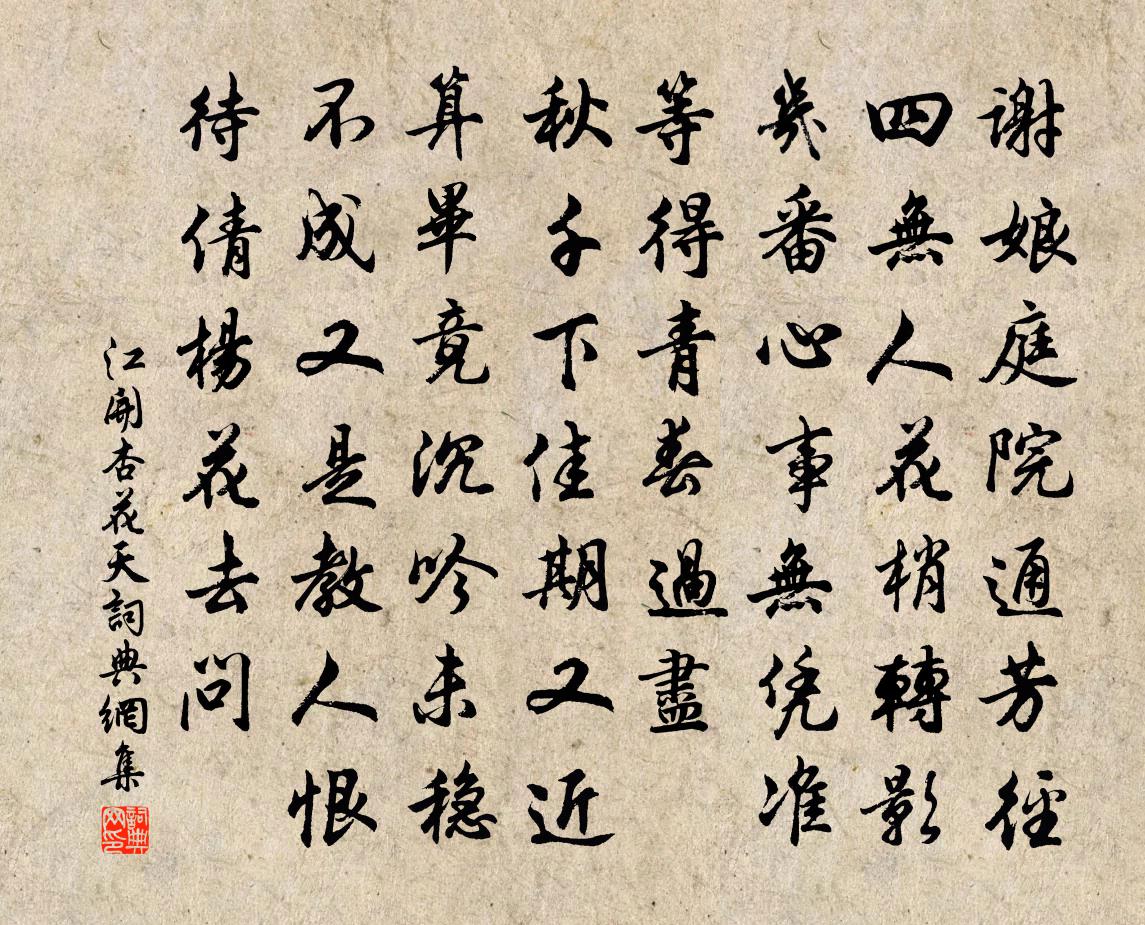 謝娘庭院通芳徑
四無人花梢轉影
幾番心事無凭准
等得青春過盡
秋千下佳期又近
算畢竟沉吟未穩
不成又是教人恨
待倩楊花去問
江開杏花天詞典網集
詞典網印